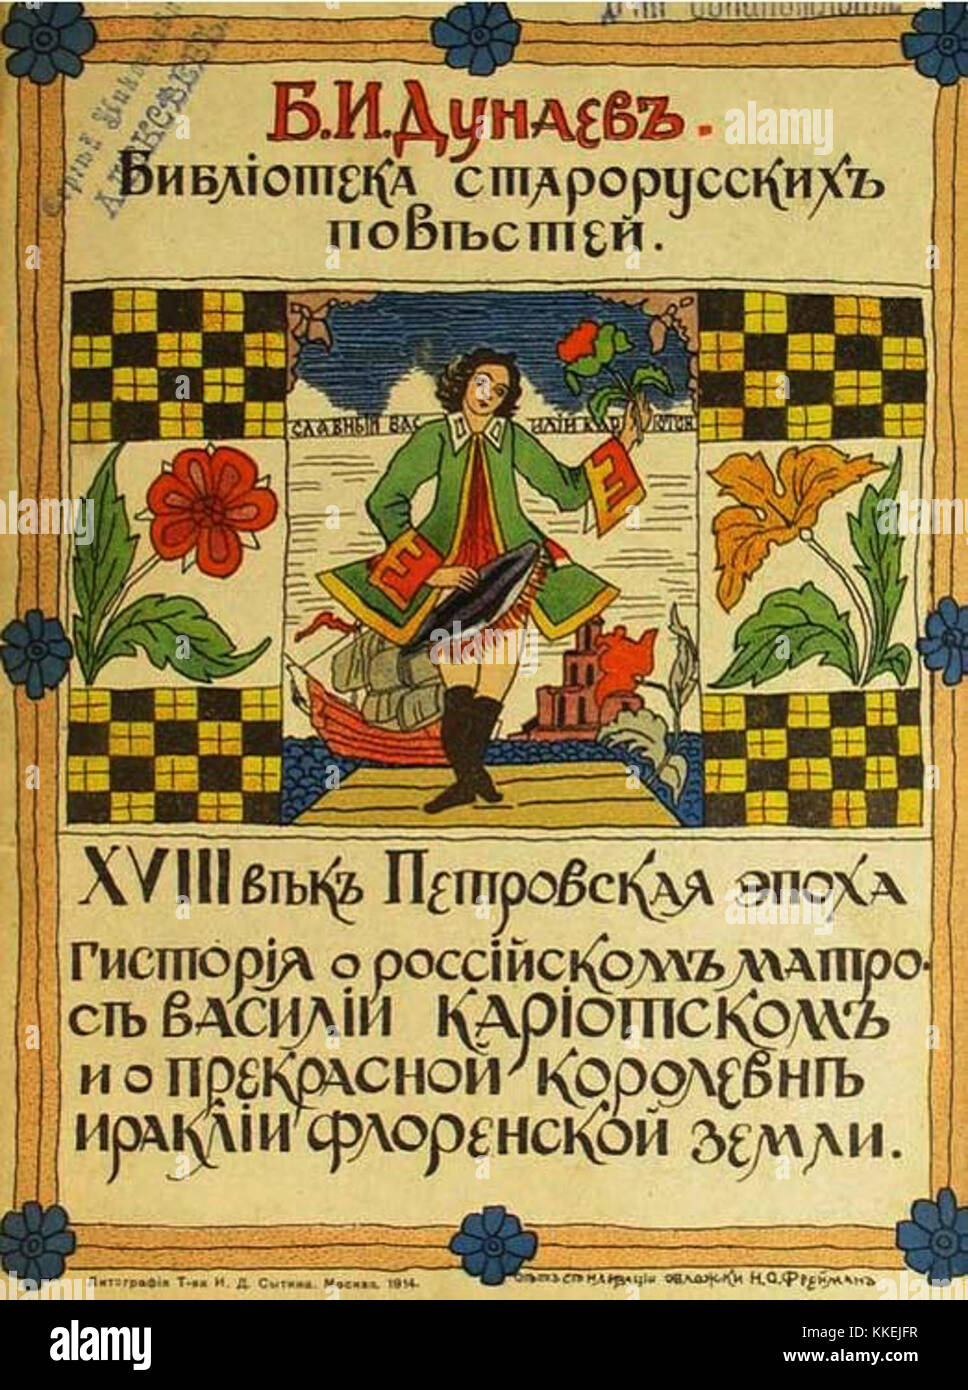 Б.И.Дунаевъ.
Библіотека старорусскихъ
повѣстей.
СЛАВНЫЙ ВАСИЛІЙ КАРІОТСК
XVIII вѣкъ Петровская эпоха
Гисторія о россійскомъ матро-
сѣ Василіи Каріотскомъ
и о прекрасной королевнѣ
Ираклiи Флоренской земли.
Литографія Т-ва И. Д. Сытина. Москва. 1914.
обложки Н.О.Фрейманъ
alamy
Image ID: KKEJFR
www.alamy.com